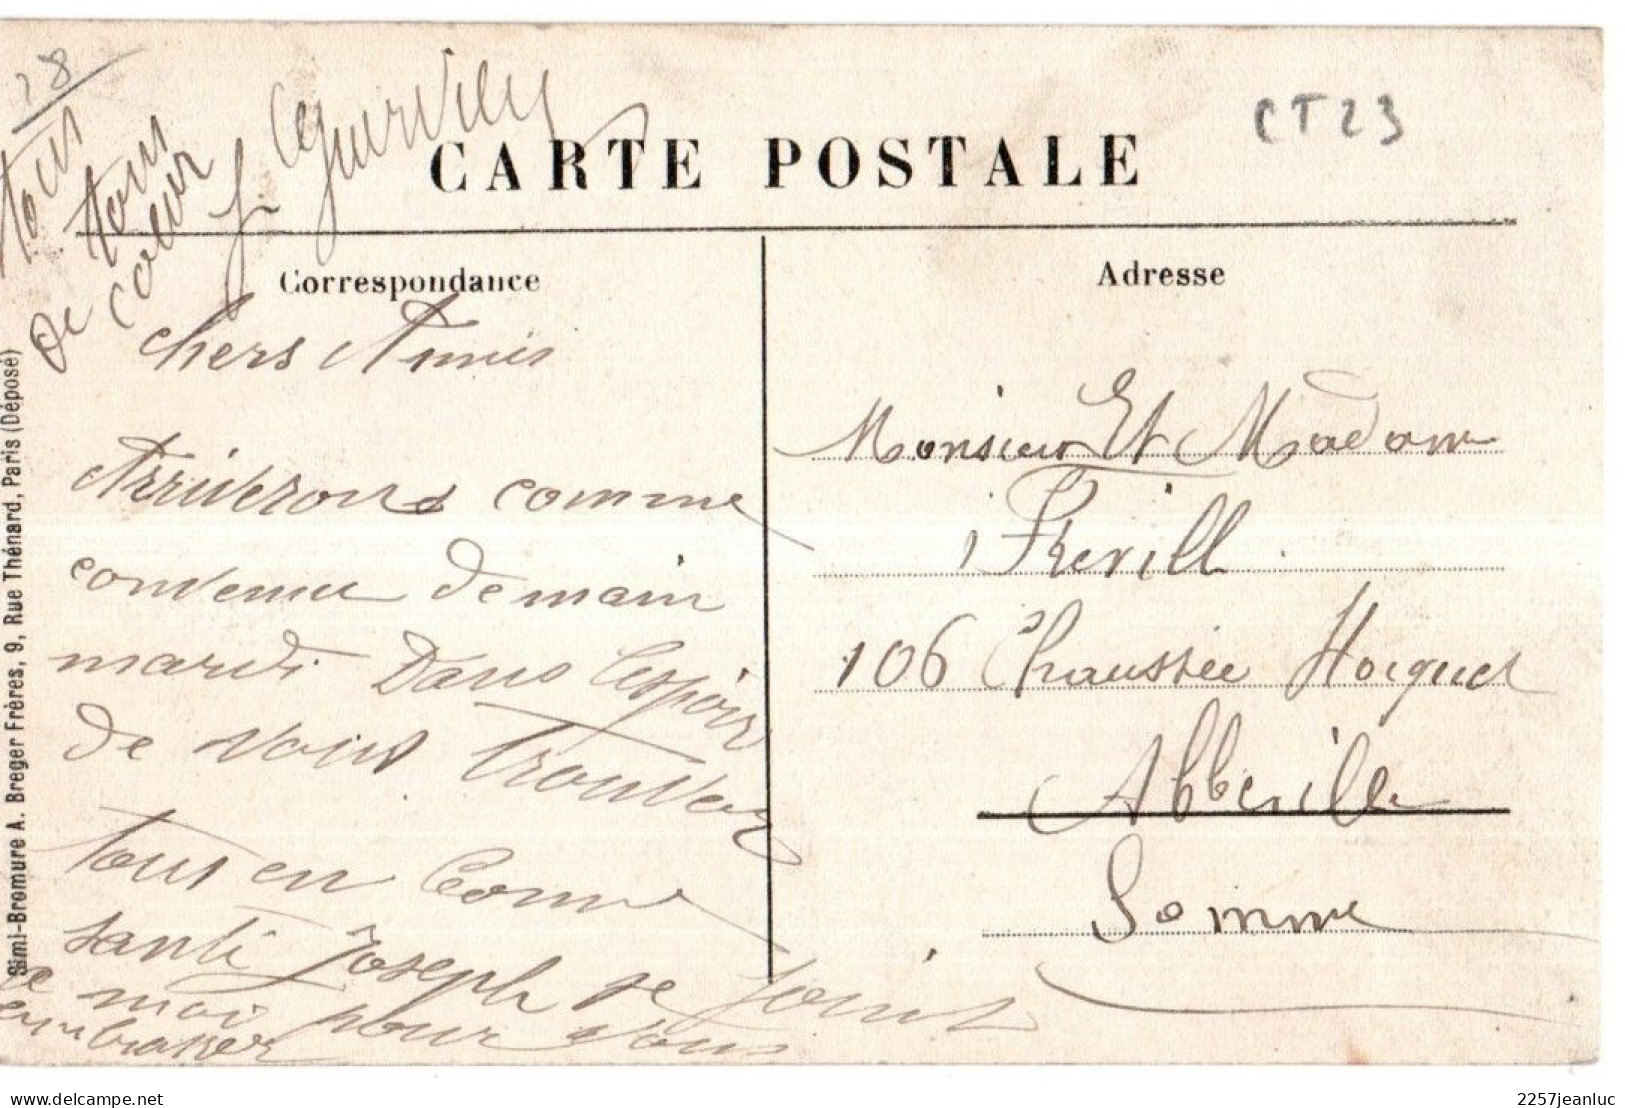 28
CT23
CARTE POSTALE
Correspondance
Adresse
chers Amis
Arriverons comme
convenu demain
mardi Dans lespoir
de vous trouver
tous en bonne
santé Joseph se joint
a moi pour vous
embrasser
tous
tous
De coeur
J. Legueurvilly
Monsieur Et Madame
Frevill
106 Chaussée Hocquet
Abbeville
Somme
Simi-Bromure A. Breger Frères, 9, Rue Thénard, Paris (Déposé)
delcampe.net
2257jeanluc